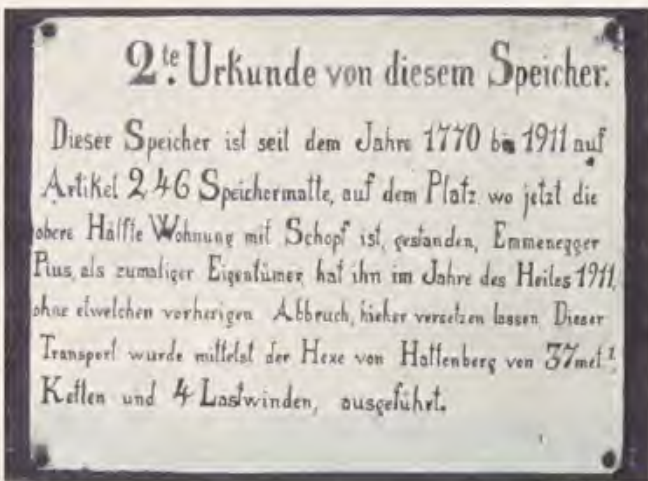 2te. Urkunde von diesem Speicher.
Dieser Speicher ist seit dem Jahre 1770 bis 1911 auf
Artikel 246 Speichermatte, auf dem Platz wo jetzt die
obere Hälfte Wohnung mit Schopf ist, gestanden, Emmenegger
Pius, als zumaliger Eigentümer, hat ihn im Jahre des Heiles 1911,
ohne etwelchen vorherigen Abbruch, hieher versetzen lassen Dieser
Transport wurde mittelst der Hexe von Hattenberg von 37 met
Ketten und 4 Lastwinden, ausgeführt.